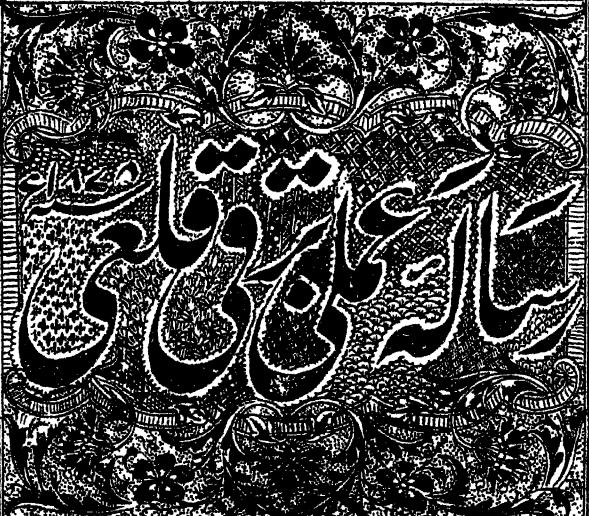 رسالہ عملی برقی قلعی